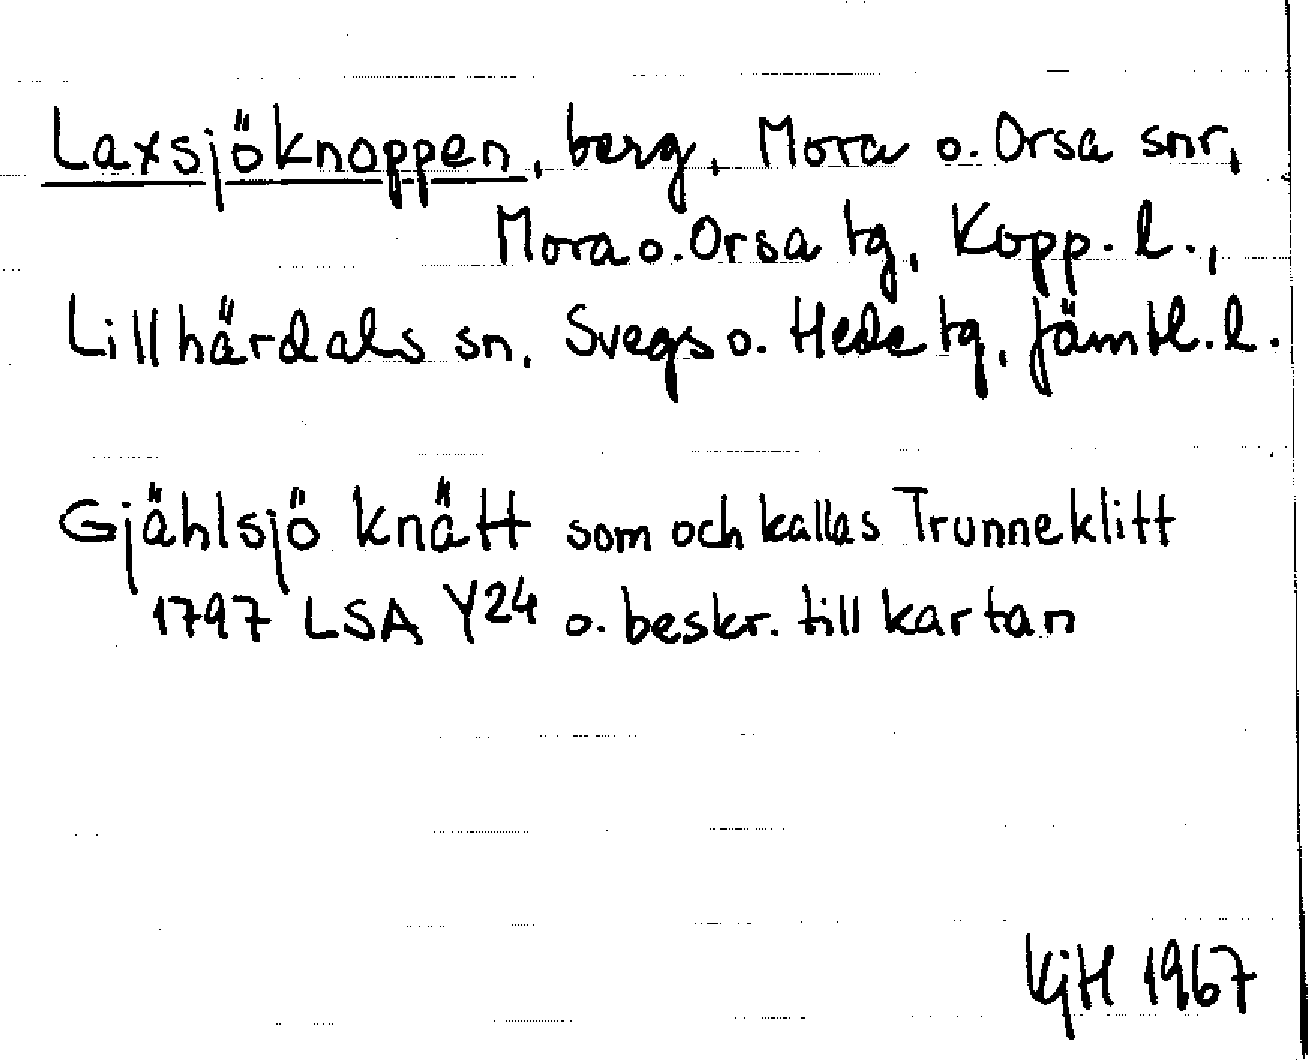 Laxsjöknoppen, berg, Mora o. Orsa snr,
Mora o. Orsa tg, Kopp. l.,
Lillhärdals sn, Svegs o. Hede tg, Jämtl. l.
Gjählsjö knätt som och kallas Trunneklitt
1797 LSA Y24 o. beskr. till kartan
KjH 1967